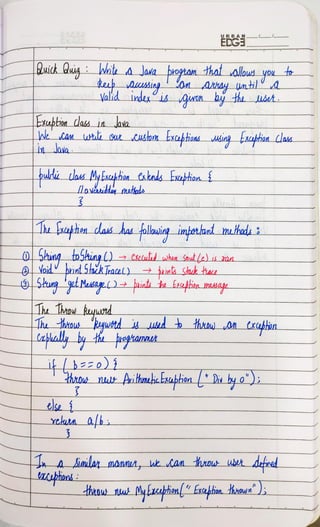 URBAN
EDGE
Quick Quiz : Write a Java program that allows you to
keep accessing an array until a
valid index is given by the user.
Exception class in Java
We can write our custom Exceptions using Exception Class
in Java
public class MyException extends Exception {
// overridden methods
}
The Exception class has following important methods :
① String toString () → executed when sout (e) is ran
② void printStackTrace () → prints stack trace
③ String getMessage () → prints the Exception message
The Throw keyword
The throw keyword is used to throw an exception
explicitly by the programmer
if ( b == 0 ) {
throw new ArithmeticException (" Div by 0");
}
else {
return a/b ;
}
In a similar manner, we can throw user defined
exceptions :
throw new MyException(" Exception thrown");